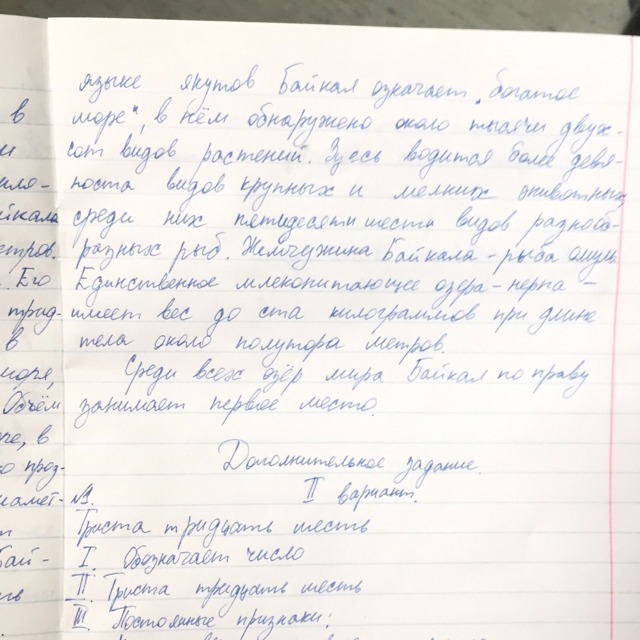 языке якутов Байкал означает „богатое
в море", в нём обнаружено около тысячи двух-
сот видов растений. Здесь водится более девя-
носта видов крупных и мелких животных
йкала среди них пятидесяти шести видов разнооб-
етров. разных рыб. Жемчужина Байкала - рыба омуль
. Его Единственное млекопитающее озера - нерпа -
трид- имеет вес до ста килограммов при длине
в тела около полутора метров.
море, Среди всех озёр мира Байкал по праву
Объём занимает первое место.
че, в Дополнительное задание.
о проз-
II вариант.
№1.
Триста тридцать шесть
Бай- I. Обозначает число
II. Триста тридцать шесть
III Постоянные признаки: